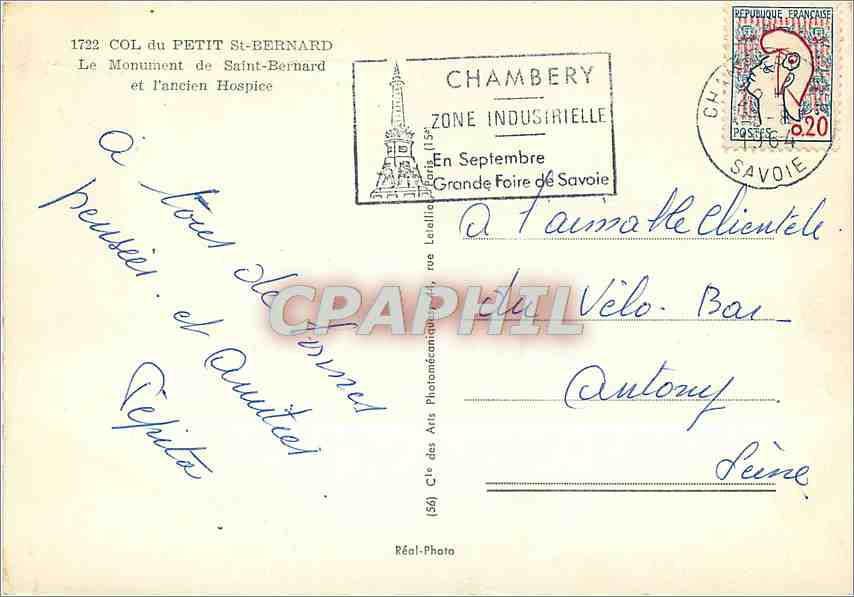 1722 COL du PETIT St-BERNARD
Le Monument de Saint-Bernard
et l'ancien Hospice
CHAMBERY
ZONE INDUSTRIELLE
En Septembre
Grande Foire de Savoie
RÉPUBLIQUE FRANÇAISE
POSTES 0.20
1964
SAVOIE
à Tous de bonnes
pensées et amitiés
Pépita
à l'aimable Clientèle
du Vélo-Bar
Antony
Seine
(56) Cie des Arts Photomécaniques, 44, rue Letellier, Paris (15e)
Réal-Photo
CPAPHIL